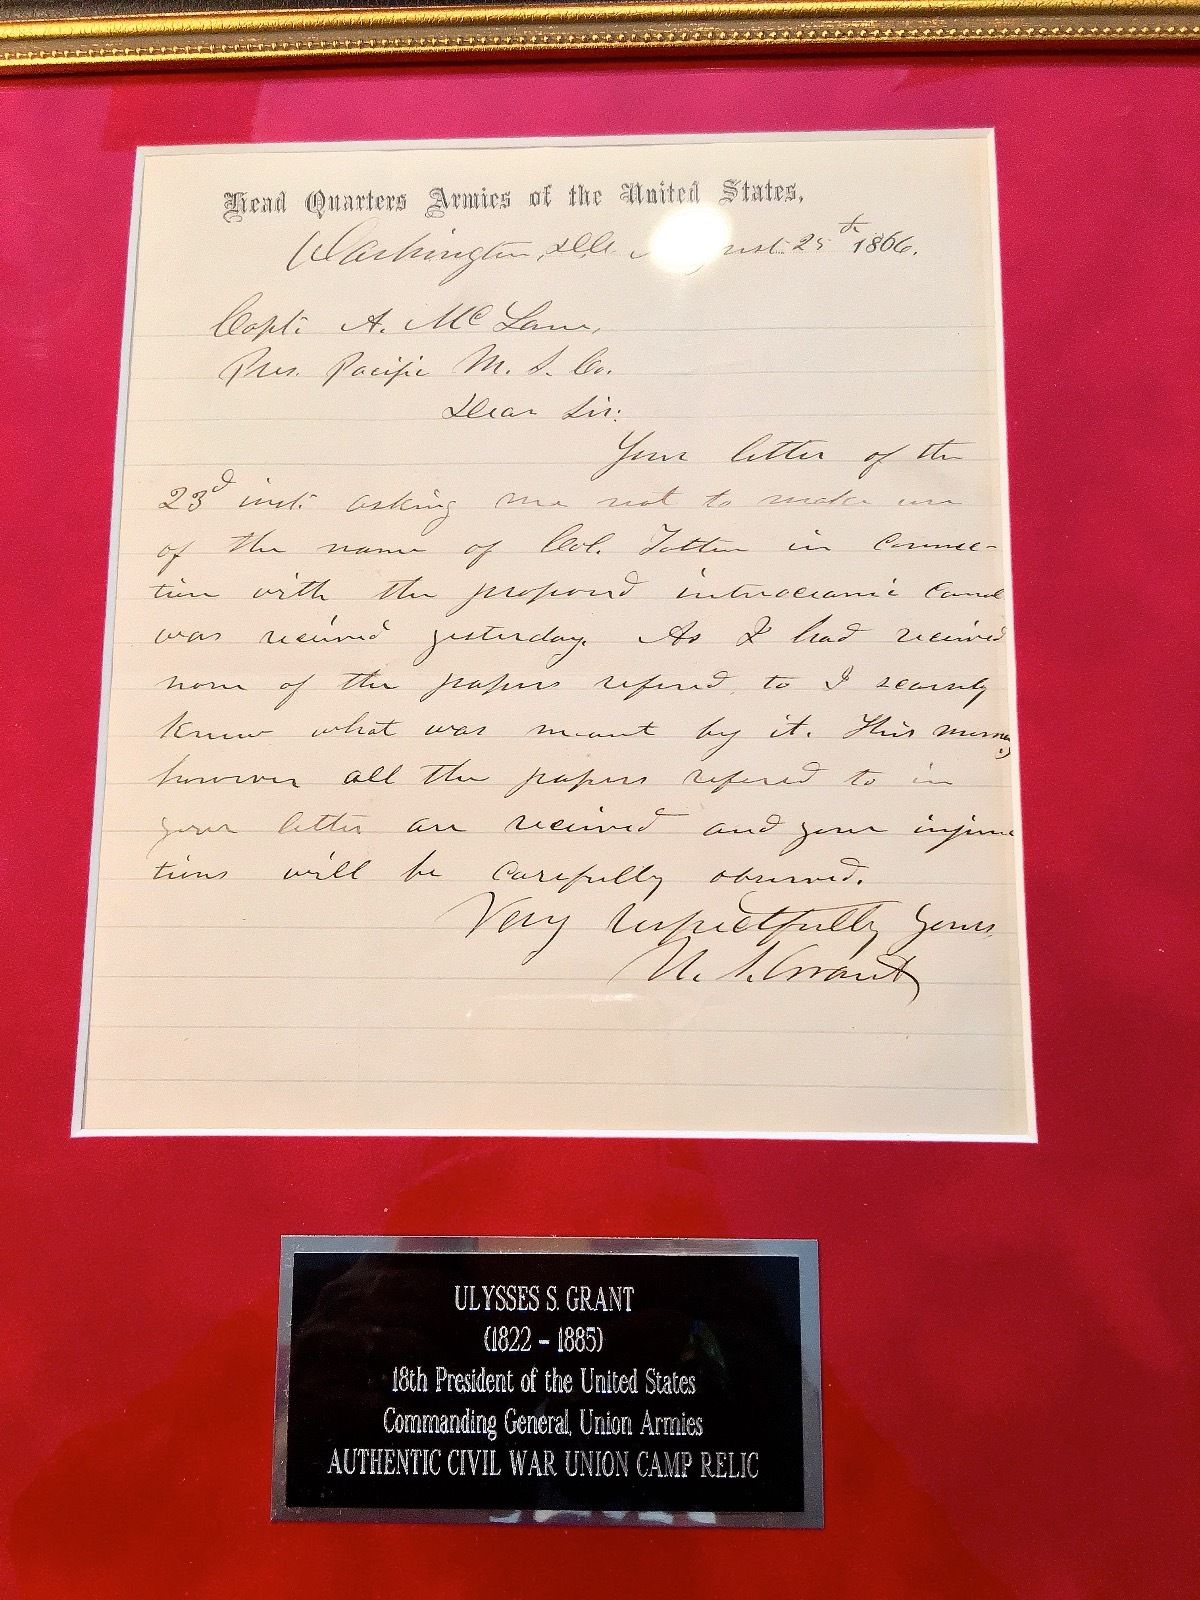 Head Quarters Armies of the United States,
Washington, D.C. August 25th 1866.
Capt. A. McLane,
Pres. Pacific M. S. Co.
Dear Sir:
Your letter of the
23d inst. asking me not to make use
of the name of Col. Totten in connec-
tion with the proposed interoceanic canal
was received yesterday. As I had received
none of the papers refered to I scarsely
knew what was meant by it. This morning
however all the papers refered to in
your letter are received and your injunc
tions will be carefully observed.
Very respectfully yours,
U. S. Grant
ULYSSES S. GRANT
(1822 - 1885)
18th President of the United States
Commanding General, Union Armies
AUTHENTIC CIVIL WAR UNION CAMP RELIC